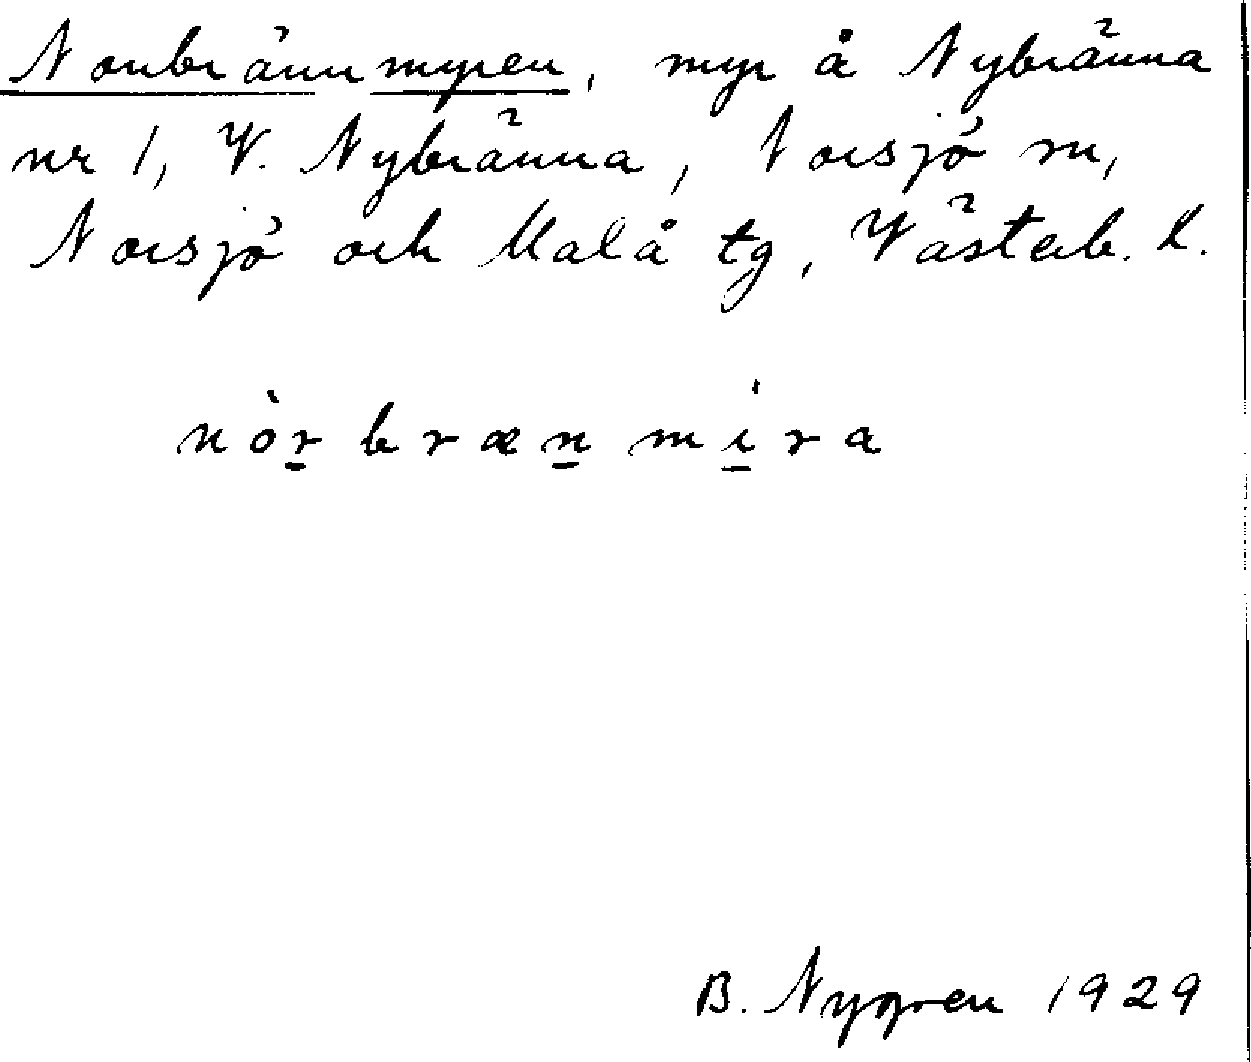 Norrbrännmyren, myr å Nybränna
nr 1, V. Nybränna, Norsjö sn,
Norsjö och Malå tg, Västerb. l.
nòr̲bræn̲mi̲ra
B. Nygren 1929